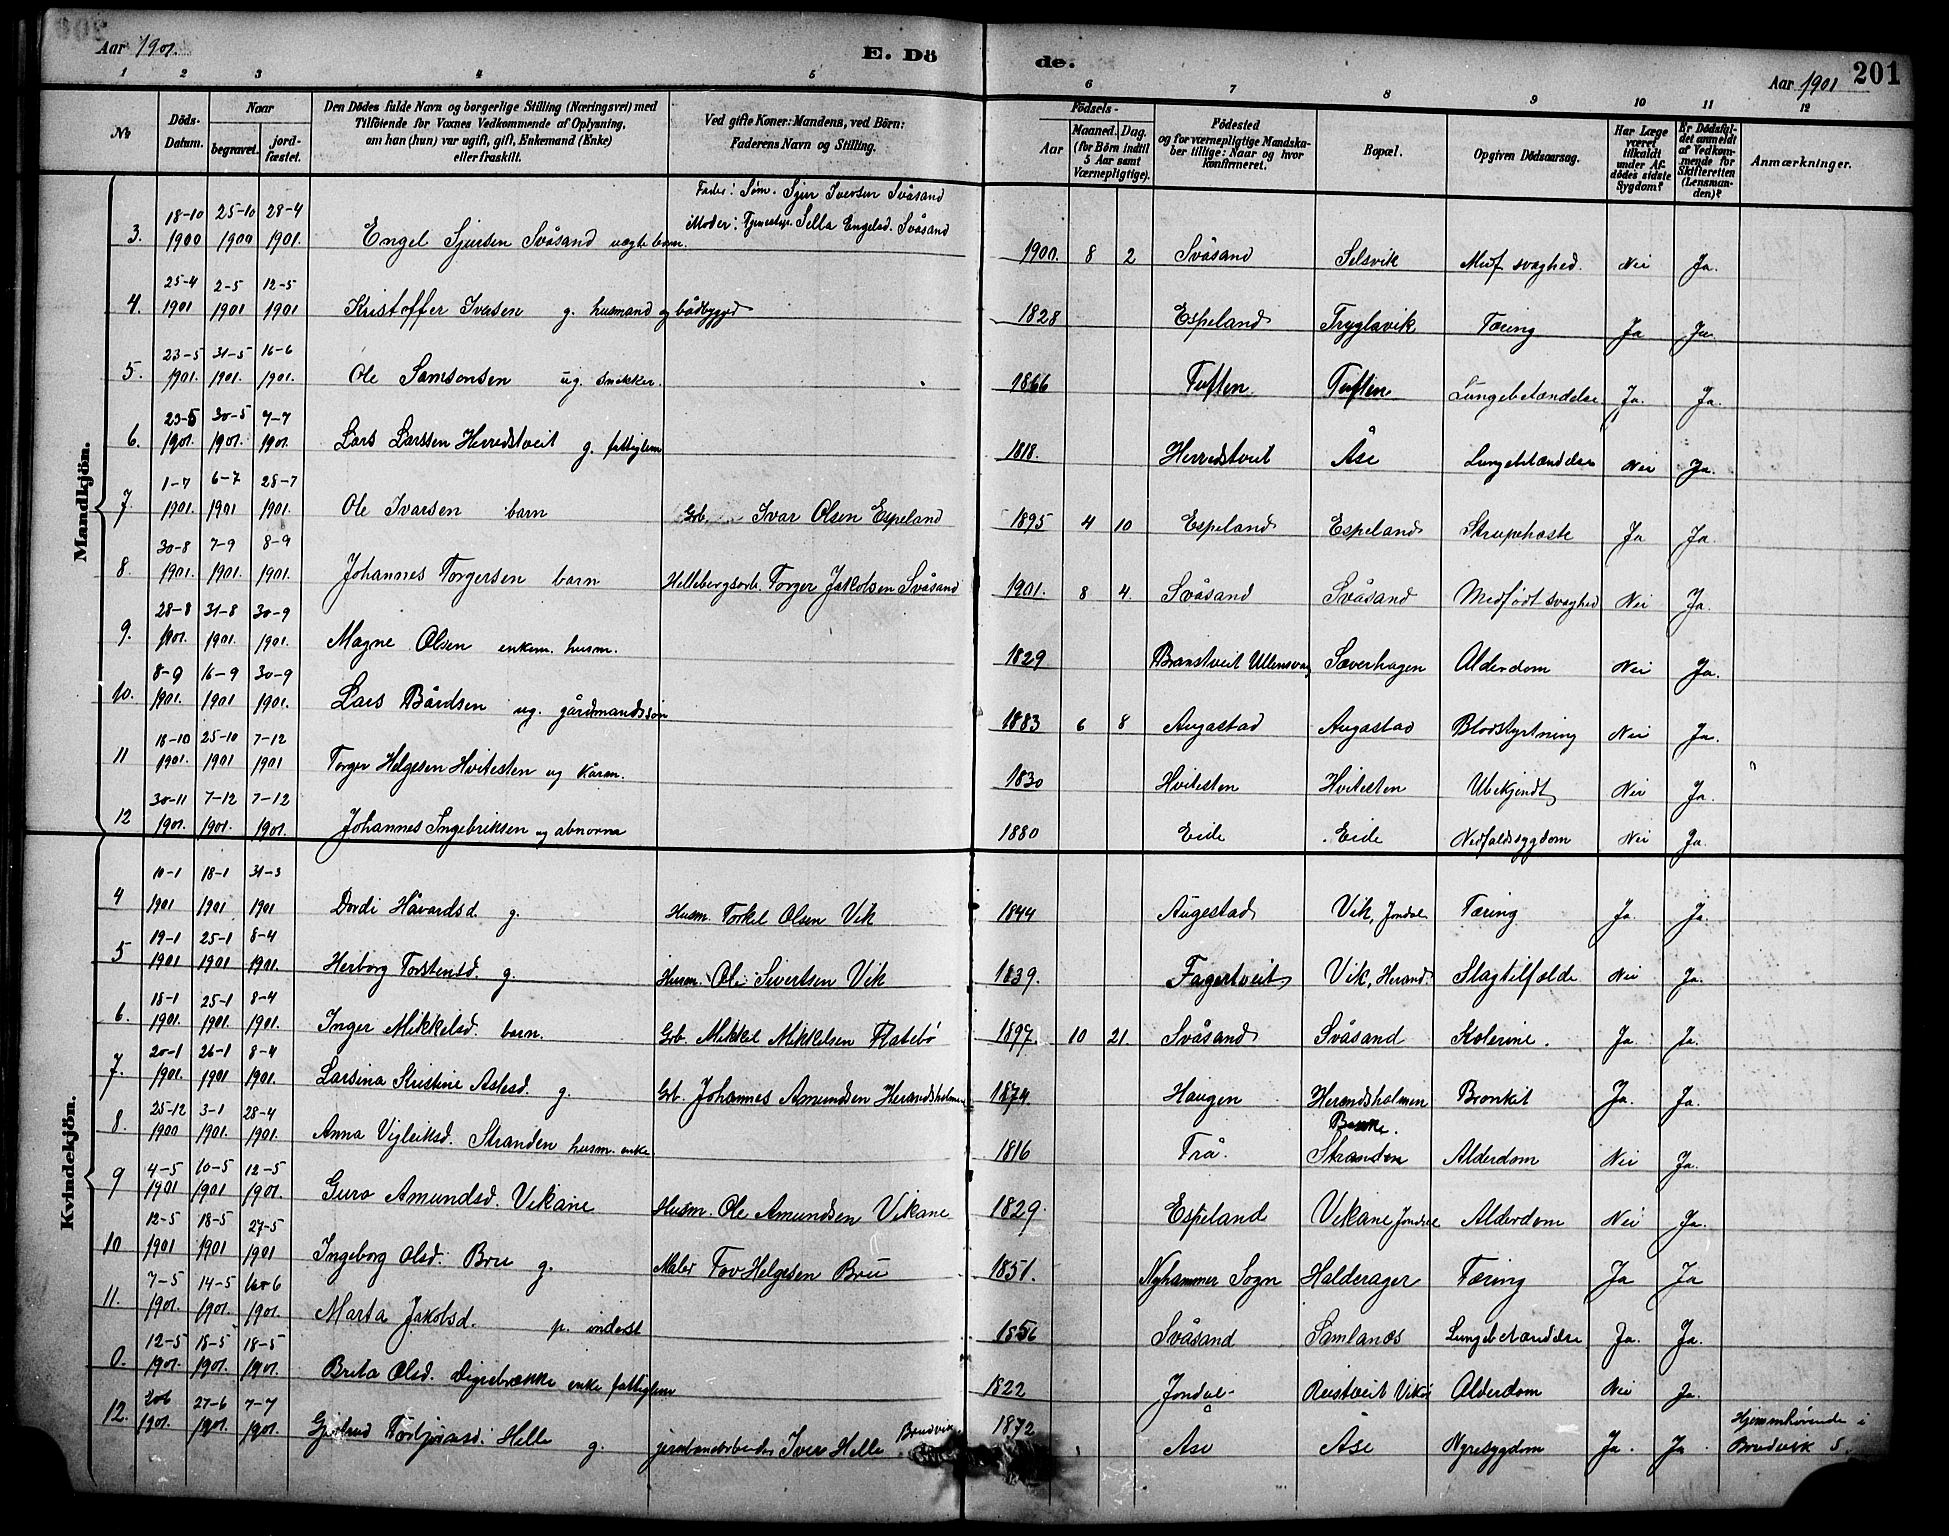 Aar 1901. E. Dö de. Aar 1901 201
1 2 3 4 5 6 7 8 9 10 11 12
No
Döds-Datum.
Naar
begravet.
jord-fæstet.
Den Dödes fulde Navn og borgerlige Stilling (Næringsvei) med
Tilföiende for Voxnes Vedkommende af Oplysning,
om han (hun) var ugift, gift, Enkemand (Enke)
eller fraskilt.
Ved gifte Koner: Mandens, ved Börn:
Faderens Navn og Stilling.
Födsels-
Aar
Maaned. Dag.
(for Börn indtil
5 Aar samt
Værnepligtige).
Födested
og for værnepligtige Mandska-
ber tillige: Naar og hvor
konfirmeret.
Bopæl.
Opgiven Dödsaarsag.
Har Læge
været
tilkaldt
under Af-
dödes sidste
Sygdom?
Er Dödsfal-
det anmeldt
af Vedkom-
mende for
Skifteretten
(Lensman-
den)?
Anmærkninger.
Mandkjön.
3. 18-10 1900 25-10 1900 28-4 1901. Engel Sjursen Svåsand uægte barn. Fader: Søm. Sjur Iversen Svåsand Moder: Tjenestep. Sella Engelsd. Svåsand 1900. 8 2 Svåsand Selsvik Medf. svaghed. Nei Ja.
4. 25-4 1901 2-5 1901 12-5 1901 Kristoffer Iversen g. husmand og bådbygger 1828 Espeland Tryglavik Tæring Ja Ja.
5. 23-5 1901. 31-5 1901. 16-6 1901. Ole Samsonsen ug. snikker. 1866 Tuften Tuften Lungebetændelse Ja. Ja.
6. 23-5 1901. 30-5 1901. 7-7 1901. Lars Larssen Herredstveit g. fattiglem 1818. Herredstveit Åse Lungebetændelse Nei Ja.
7. 1-7 1901. 6-7 1901 28-7 1901. Ole Ivarsen barn Grb. Ivar Olsen Espeland 1895 4 10 Espeland Espeland Strupehoste Ja Ja.
8. 30-8 1901. 7-9 1901. 8-9 1901. Johannes Torgersen barn Hellebergsarb. Torger Jakobsen Svåsand 1901. 8 4. Svåsand Svåsand Medfødt svaghed Nei Ja.
9. 28-8 1901. 31-8 1901. 30-9 1901. Magne Olsen enkem. husm. 1829 Branstveit Ullensvang Sæverhagen Alderdom Nei Ja.
10. 8-9 1901. 16-9 1901 30-9 1901. Lars Bårdsen ug. gårdmandssøn 1883 6 8 Augastad Augastad Blodstyrtning Nei Ja.
11 18-10 1901. 25-10 1901 7-12 1901 Torger Helgesen Hvitesten ug kårm. 1830 Hvitesten Hvitesten Ubekjendt Nei Ja.
12 30-11 1901. 7-12 1901. 7-12 1901. Johannes Ingebriksen ug abnorm 1880 Eide Eide Nedfaldssygdom Nei Ja.
Kvindekjön.
4 10-1 1901 18-1 1901 31-3 1901 Dordi Håvardsd. g. Husm. Torkel Olsen Vik 1844 Augestad Vik, Jondal Tæring Ja Ja.
5 19-1 1901 25-1 1901 8-4 1901. Herborg Torstensd. g. Husm. Ole Sivertsen Vik 1839. Fagertveit Vik, Herand. Slagtilfælde Nei Ja.
6. 18-1 1901. 25-1 1901. 8-4 1901. Inger Mikkelsd. barn. Grb. Mikkel Mikkelsen Flatebø 1897. 10 21 Svåsand Svåsand Kolerine. Ja. Ja.
7. 20-1 1901. 26-1 1901 8-4 1901. Larsina Kristine Aslesd. g. Grb. Johannes Amundsen Herandsholmen 1874. Haugen Herandsholmen Bronkit Ja. Ja.
8. 25-12 1900 3-1 1901. 28-4 1901. Anna Vigleiksd. Stranden husm. enke 1816 Trå. Stranden Alderdom Nei Ja.
9 4-5 1901 10-5 1901 12-5 1901. Guro Amundsd. Vikane Husm. Ole Amundsen Vikane 1829. Espeland Vikane Jondal Alderdom Nei Ja.
10 12-5 1901 18-5 1901 27-5 1901 Ingeborg Olsd. Bru g. Maler Tov Helgesen Bru 1851. Nyhammer Sogn Halderager Tæring Ja Ja
11. 7-5 1901. 14-5 1901. 1901. Marta Jakobsd. p. inderst 1856 Svåsand Samlanes Lungebetændelse Ja. Ja.
0. 12-5 1901. 18-5 1901. 18-5 1901. Brita Olsd. Digrebrække enke fattiglem 1822 Jondal Alderdom Nei Ja.
12. 1901. 27-6 1901. 7-7 1901. Gjertrud Torbjørnsd. Helle g. jernbanearbeider Iver Helle Bruvik 1872 Åse Åse Nyresygdom Ja. Ja Hjemmehørende i Bruvik S.